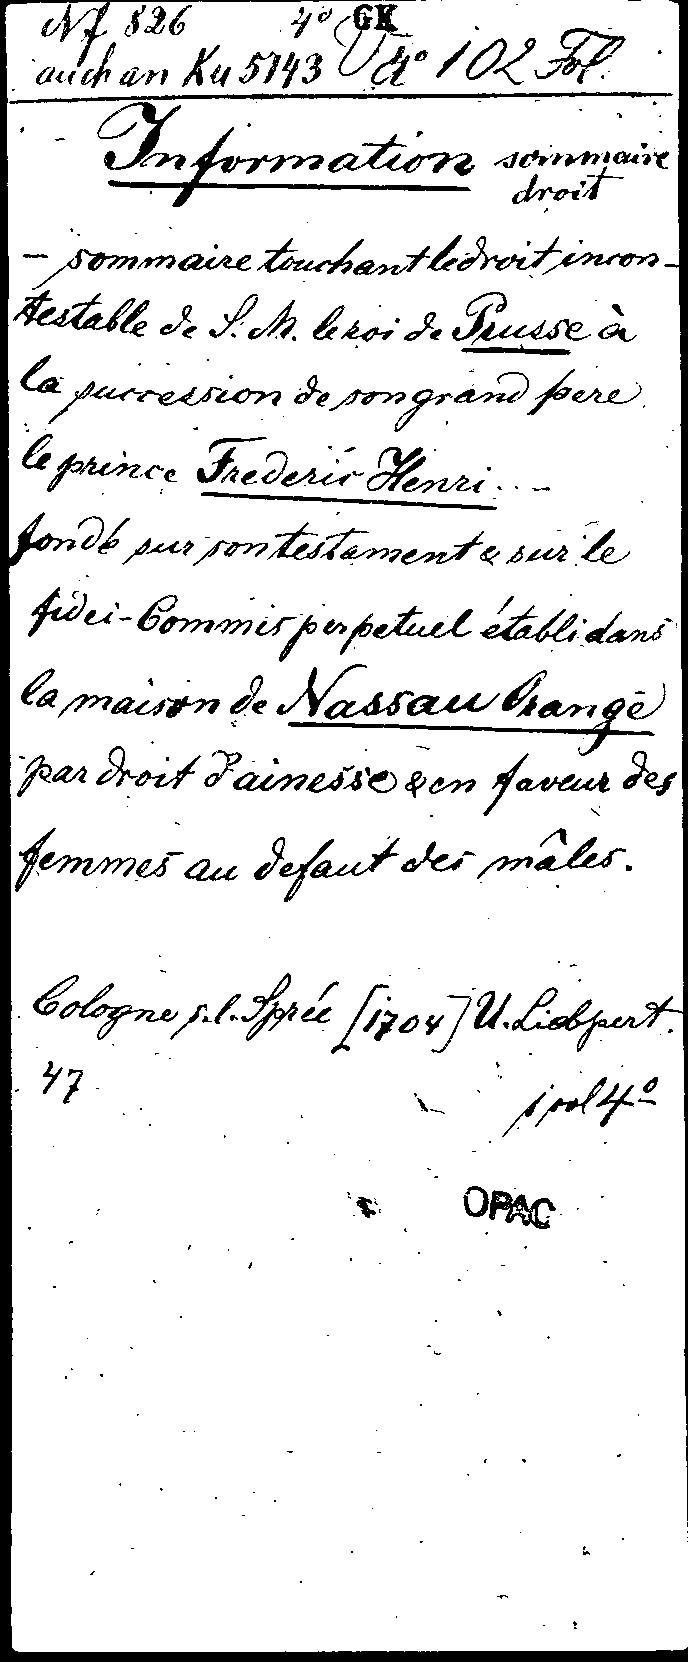 Nf 826 4° GK
auch an Ku 5143 4° 102 Fol.
Information sommaire
droit
— sommaire touchant le droit incon-
testable de S. M. le roi de Prusse à
la succession de son grand pere
le prince Frederic Henri . . –
fondé sur son testament & sur le
fidei-Commis perpetuel établi dans
la maison de Nassau Orange
par droit d'ainesse & en faveur des
femmes au defaut des mâles.
Cologne s. l. Sprée [1704] U. Liebpert.
47
1 vol 4°
OPAC